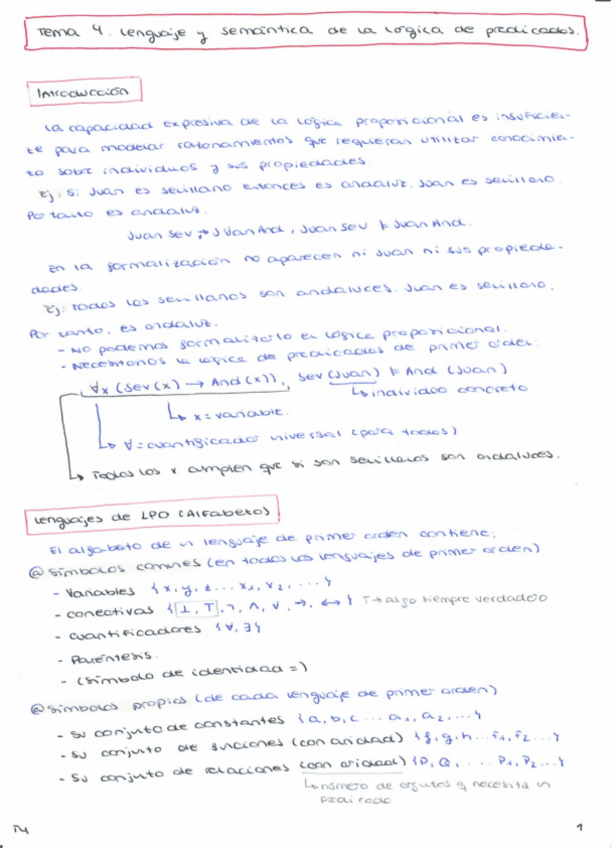 Tema 4. Lenguaje y semántica de la lógica de predicados.
Introducción
La capacidad expresiva de la lógica proposicional es insuficien-
te para modelar razonamientos que requieran utilizar conocimie-
to sobre individuos y sus propiedades.
Ej: Si Juan es sevillano entonces es andaluz. Juan es sevillano.
Por tanto es andaluz.
Juan Sev → Juan And, Juan Sev ⊧ Juan And.
En la formalización no aparecen ni Juan ni sus propieda-
dades.
Ej: Todos los sevillanos son andaluces. Juan es sevillano.
Por tanto, es andaluz.
- No podemos formalizarlo en lógica proposicional.
- Necesitamos la lógica de predicados de primer orden:
∀x (Sev(x) → And(x)), Sev(Juan) ⊧ And (Juan)
↳ individuo concreto
↳ x = variable.
↳ ∀ = cuantificador universal (para todos)
↳ Todos los x cumplen que si son sevillanos son andaluces.
Lenguajes de LPO (Alfabeto)
El alfabeto de un lenguaje de primer orden contiene:
@ Símbolos comunes (en todos los lenguajes de primer orden)
- Variables {x, y, z ... x₁, x₂, ...}
- conectivas {⊥, T, ¬, ∧, ∨, →, ↔} T → algo siempre verdadero
- cuantificadores {∀, ∃}
- Paréntesis.
- (símbolo de identidad =)
@ Símbolos propios (de cada lenguaje de primer orden)
- Su conjunto de constantes {a, b, c ... a₁, a₂, ...}
- Su conjunto de funciones (con aridad) {f, g, h ... f₁, f₂ ...}
- Su conjunto de relaciones (con aridad) {P, Q, ... P₁, P₂ ...}
↳ número de q necesita un
predicado
T4
1